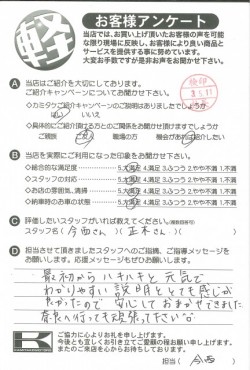 軽
お客様アンケート
当店では、お買い上げ頂いたお客様の声を可能
な限り現場に反映し、お客様により良い商品と
サービスを提供する事に努めています。
大変お手数ですが是非お声をお聞かせ下さい。
A 当店はご紹介を大切にしております。
ご紹介キャンペーンについてお聞かせ下さい。
◇カミタケご紹介キャンペーンのご説明はありましたでしょうか
はい いいえ
◇具体的にご紹介頂ける方とのご関係をお聞かせ頂けますでしょうか
ご親族 ご友人 職場の方 機会があれば紹介したい
B 当店を実際にご利用になった印象をお聞かせ下さい。
◇総合的な満足度 5.大満足 4.満足 3.ふつう 2.やや不満 1.不満
◇スタッフの対応 5.大満足 4.満足 3.ふつう 2.やや不満 1.不満
◇お店の雰囲気、清掃 5.大満足 4.満足 3.ふつう 2.やや不満 1.不満
◇納車時のお車の状態 5.大満足 4.満足 3.ふつう 2.やや不満 1.不満
C 評価したいスタッフがいれば教えてください。(複数回答可)
スタッフ名 (今西さん) (正木さん)
D 担当させて頂きましたスタッフへのご指摘、ご指導メッセージを
お願いします。応援メッセージもぜひお願いします。
最初からハキハキと元気で
わかりやすい説明とても感じが
よかったので安心しておまかせできました
奈良へ行っても頑張って下さい。
K
ご協力に心よりお礼を申し上げます。
今後とも宜しくお引き立てご愛顧の程お願い申し上げます。
またのご来店を心からお待ちしております。
担当 ( 今西 )